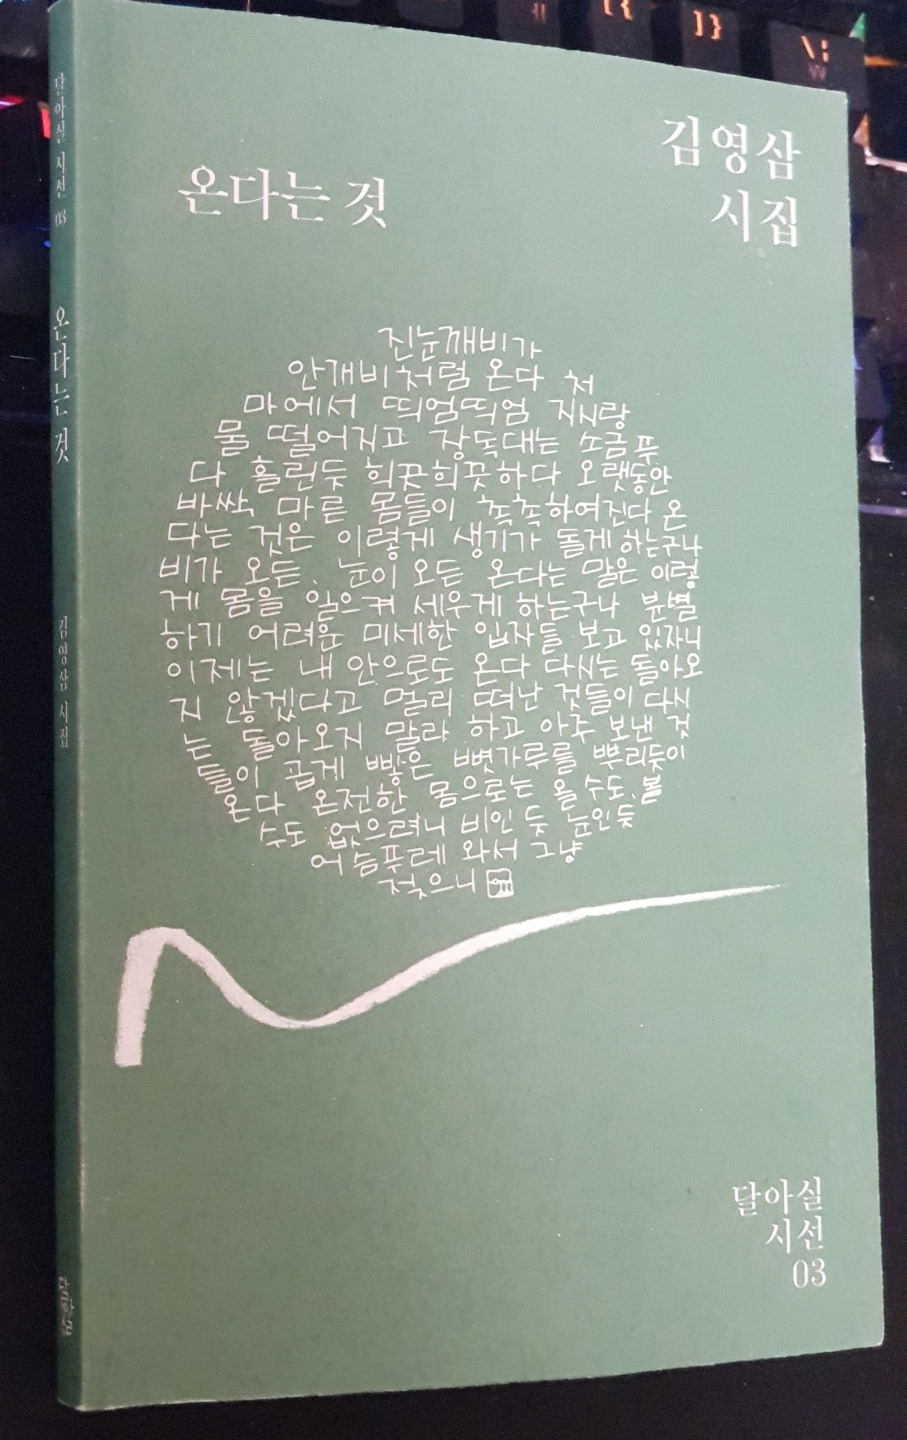 달아실 시선 03
온다는 것
김영삼 시집
달아실
김영삼
시집
온다는 것
진눈깨비가
안개비처럼 온다 처
마에서 띄엄띄엄 지시랑
물 떨어지고 장독대는 소금 푸
다 흘린듯 희끗희끗하다 오랫동안
바싹 마른 몸들이 촉촉하여진다 온
다는 것은 이렇게 생기가 돌게 하는구나
비가 오든, 눈이 오든 온다는 말은 이렇
게 몸을 일으켜 세우게 하는구나 분별
하기 어려운 미세한 입자들 보고 있자니
이제는 내 안으로도 온다 다시는 돌아오
지 않겠다고 멀리 떠난 것들이 다시
는 돌아오지 말라 하고 아주 보낸 것
들이 곱게 빻은 뼛가루를 뿌리듯이
온다 온전한 몸으로는 올 수도, 볼
수도 없으려니 비인 듯 눈인 듯
어슴푸레 와서 그냥
젖으니
달아실
시선
03